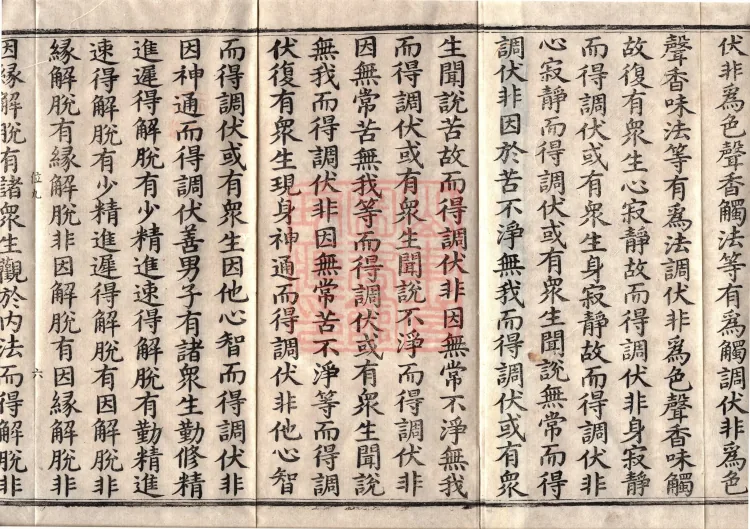 伏非爲色聲香觸法等有爲觸調伏非爲色
聲香味法等有爲法調伏非爲色聲香味觸
故復有衆生心寂靜故而得調伏非身寂靜
而得調伏或有衆生身寂靜故而得調伏非
心寂靜而得調伏或有衆生聞說無常而得
調伏非因於苦不淨無我而得調伏或有衆
生聞說苦故而得調伏非因無常不淨無我
而得調伏或有衆生聞說不淨而得調伏非
因無常苦無我等而得調伏或有衆生聞說
無我而得調伏非因無常苦不淨等而得調
伏復有衆生現身神通而得調伏非他心智
而得調伏或有衆生因他心智而得調伏非
因神通而得調伏善男子有諸衆生勤修精
進遲得解脫有少精進速得解脫有勤精進
速得解脫有少精進遲得解脫有因解脫非
緣解脫有緣解脫非因解脫有因緣解脫非
位九 六
因緣解脫有諸衆生觀於內法而得解脫非